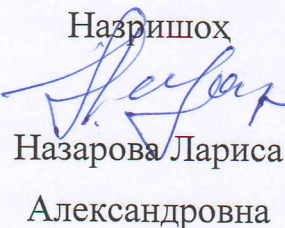 Назришоҳ
Назарова Лариса
Александровна